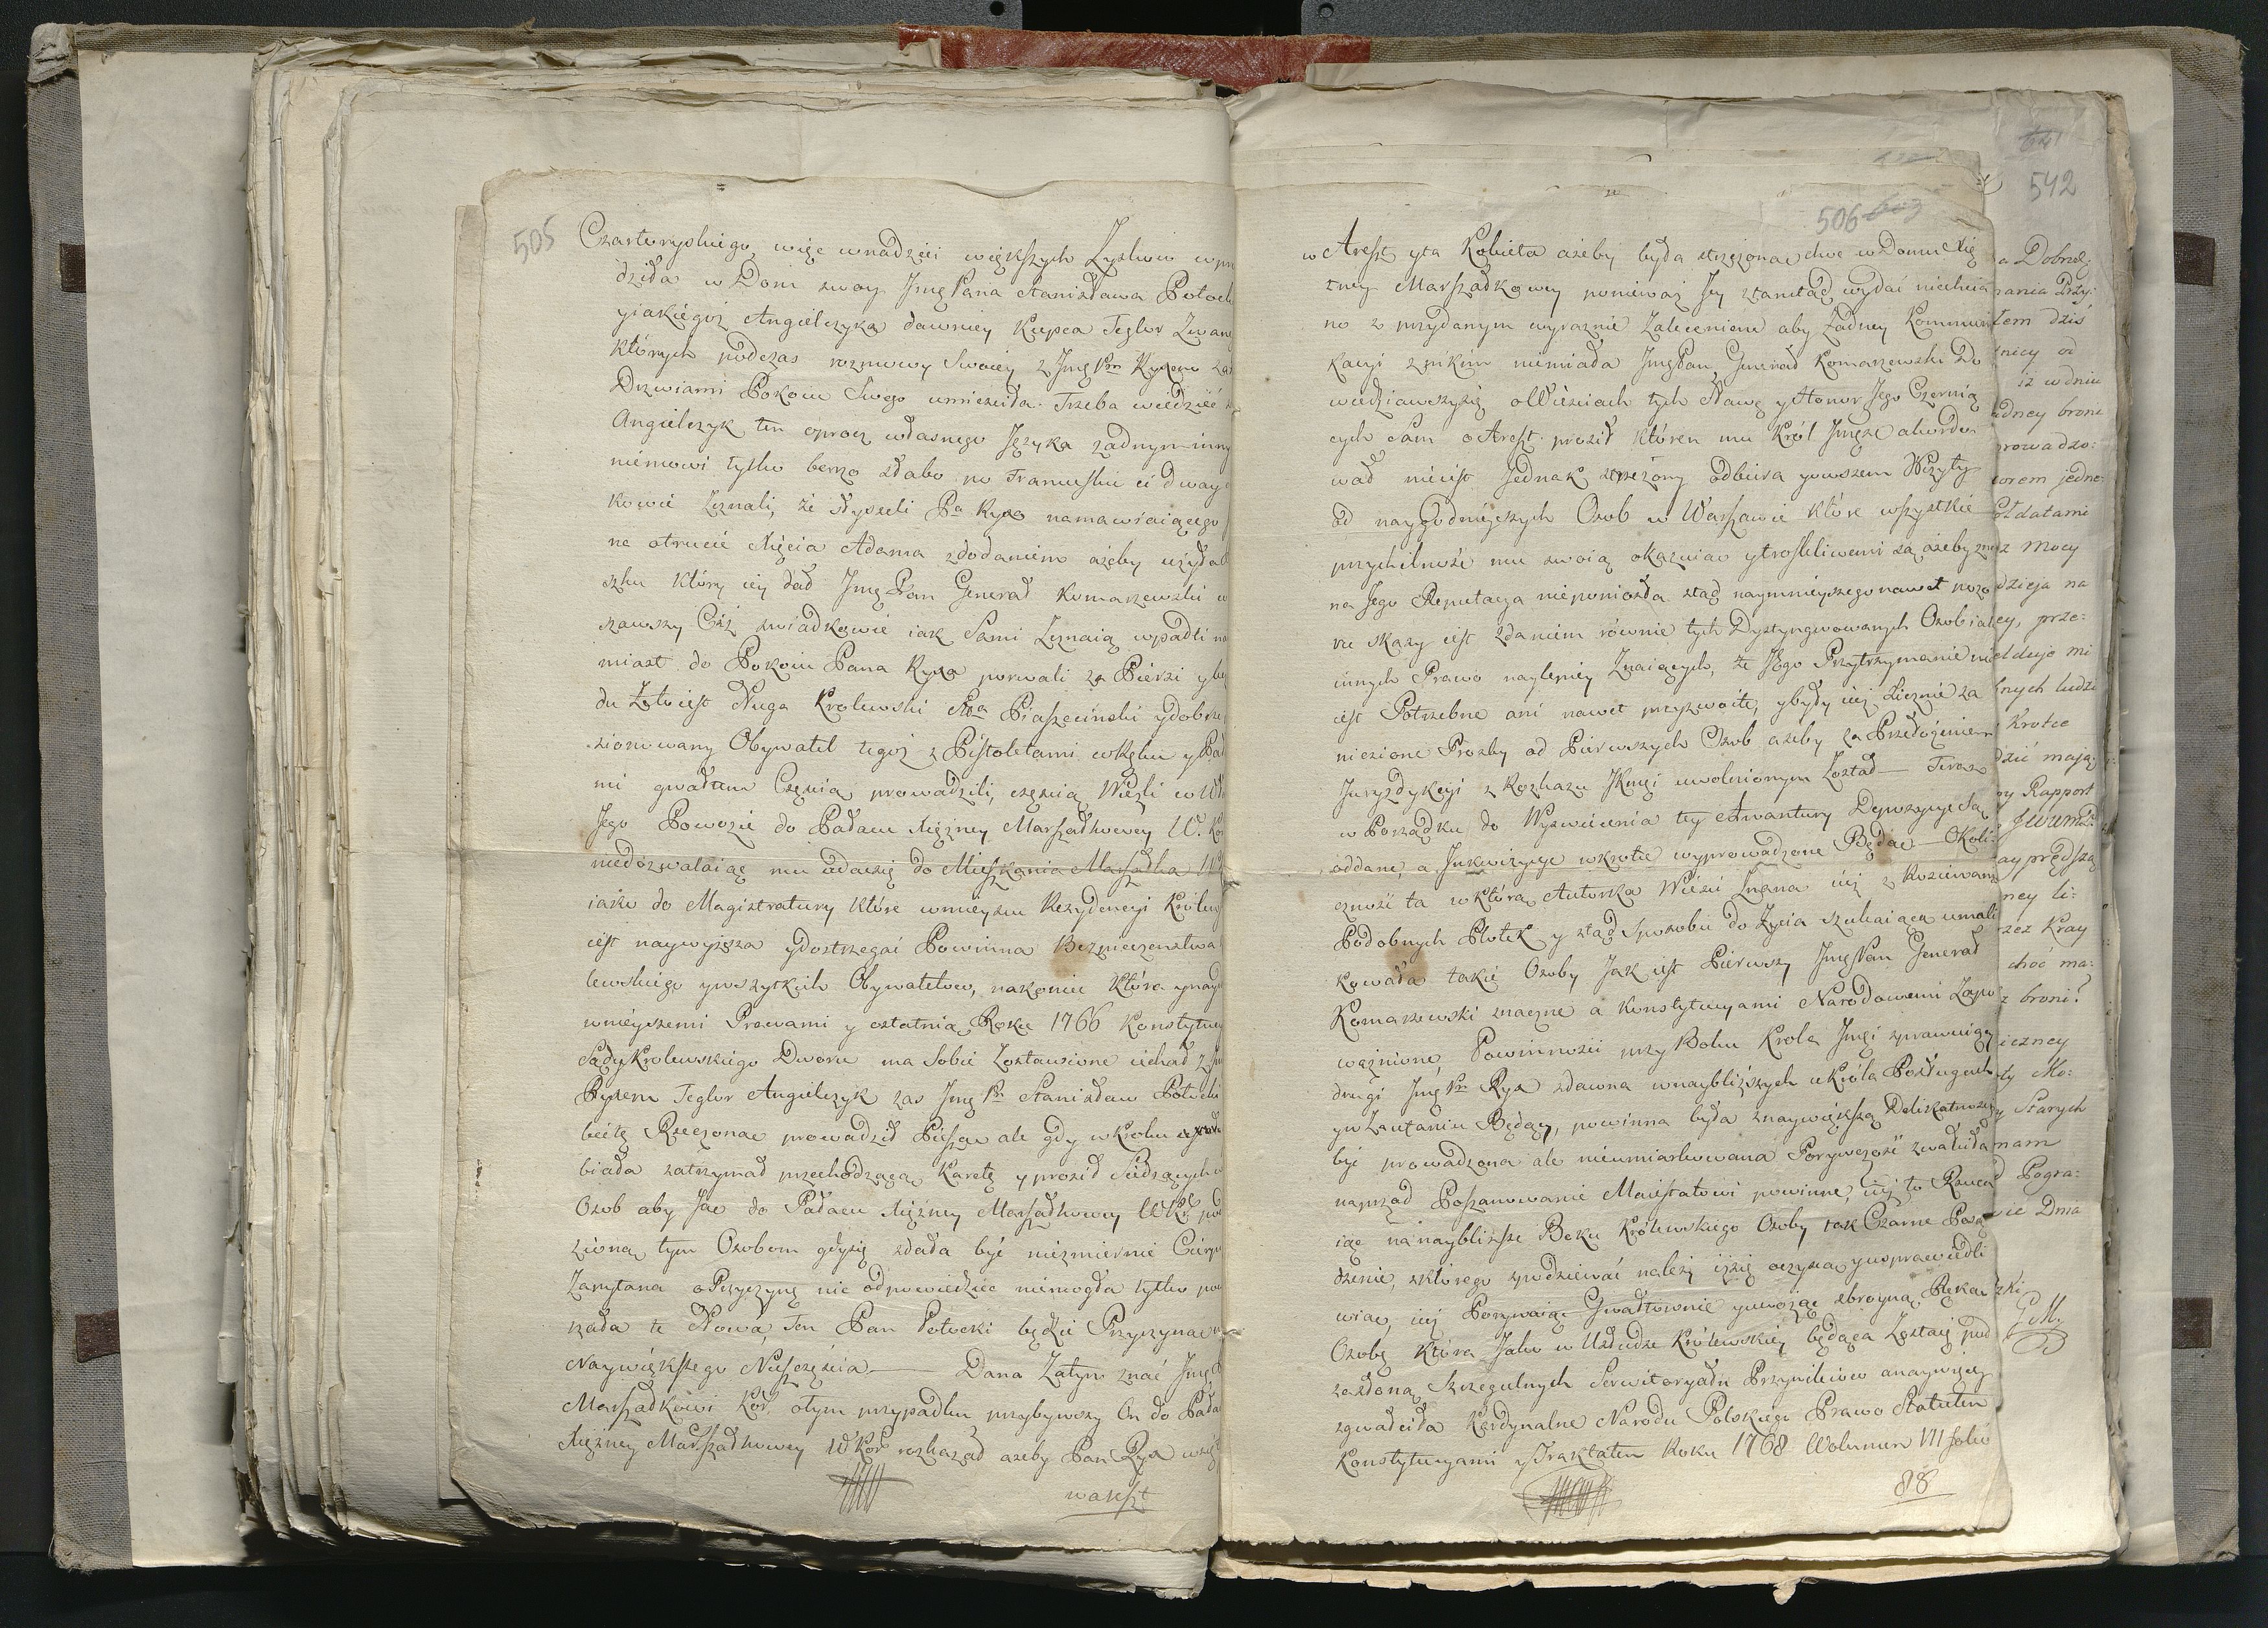 505
Czartoryskiego, więc wnadzieii większych Zyskow
dziła w Dom swoy Jmę Pana Stanisława Potock
yiakiegoż Angielczyka dawniey Kupca Teglor Zwan
których podczas rozmowy Swoiey z Jmę Pn Ryxem za
Drzwiami Pokoiu Swego umieściła. Trzeba wiedzieć
Angielczyk ten oprocz własnego Języka zadnym inny
niemowi tylko barzo słabo po Francusku ci dway
kowie Zeznali, że słyszeli Pa Ryxa namawiaiącego
na otrucie Xięcia Adama zdodaniem ażeby użyła
szku który iey dał Jmę Pan Generał Komarzewski
szawszy Ciż swiadkowie iak Sami Zeznaią wpadli na
miast do Pokoiu Pana Ryxa porwali za Piersi y
du Zoto iest Sługa Krolewski Sta Piaseczinski ydobrze
sionowany Obywatel tegoż z Pistoletami wRęku y Pał
mi gwałtem Częścią prowadzili, częscią Wieźli w
Jego Powozie do Pałacu Xiężney Marszałkowey W. Ko
niedozwalaiąc mu udaćsię do Mieszkania Marszałka
iako do Magistratury które wmieyscu Rezydencyi Królew
iest naywyższa ydostrzegać Powinna Bezpieczenstwa
lewskiego ywszytkich Obywatelow, nakoniec która
wnieyszemi Prawami y ostatnią Roku 1766 Konstytucy
Sądy Krolewskiego Dworu ma Sobie Zostawione iechał z
Ryxem Teglor Angielczyk zas Jmę Pn Stanisław Potocki
bietę Rzeczoną prowadził Pieszo ale gdy wKroku
biała zatrzymał przechodzącą Karetę yprosił Siedzących
Osob aby Ją do Pałacu Xiężney Marszałkowey WKr po
zioną tym Osobom gdysię zdała być niezmiernie Cierp
Zapytana oPrzyczynę nic odpowiedzieć niemogła tylko po
rzała te Słowa, Ten Pan Potocki będzie Przyczyną
Naywiększego Nieszczęścia — Dana Zatym znać Jmę
Marszałkowi Kor. otym przypadku przybywszy On do Pała
Xiężney Marszałkowey WKor rozkazał ażeby Pan Ryx wzięt
warest
542
506
w Areszt yta Kobieta ażeby była strzeżona chce wDomu Xię
żney Marszałkowey ponieważ Jey ztamtąd wydać niechcia
no z przydanym wyraznie Zaleceniem aby Żadney Kommuni
kacyi znikim niemiała Jmę Pan Generał Komarzewski do
wiedziawszysię oWieściach tych Sławę yHonor Jego Czernią
cych Sam oAreszt prosił któren mu Król Jmęsc akordo
wał nieiest Jednak strzeżony odbiera yowszem Wizyty
od naygodnieyszych Osob w Warszawie które wszystkie
przychilność mu swoią okazuiac ytroskliwemi są ażeby
na Jego Reputacya nieponiosła ztąd naymnieyszego nawet pozo
ru skazy iest zdaniem równie tych Dystyngwowanych Osob iak
innych Prawo naylepiey Znaiących, że Jego Przytrzymanie nie
iest Potrzebne ani nawet przyzwoite, ybyły iuż Licznie za
niesione Prozby od Pierwszych Osob ażeby za Przełożeniem
Juryzdykcyi z Rozkazu JKmći uwolnionym Został — Teraz
w Porządku do Wyswiecenia tey Awantury Depozycye Są
oddane, a Jnkwizycye wkrotce wyprowadzone Będą — Okoli-
czność ta wktórą Autorka Wieści Znana iuż z Rozsiewania
Podobnych Plotek y ztąd Sposobu do Życia szukaiąca umali
kowała takie Osoby Jak iest Pierwszy Jmę Pan Generał
Komarzewski znaczne a Konstytucyami Narodowemi Zapo
ważnione, Powinności przy Boku Krola Jmći sprawuiący
drugi Jmę Pn Ryx zdawna wnaybliższych uKróla Posługach
yw Zaufaniu Będący, powinna była znaywiększą Delikatnością
być prowadzona ale nieumiarkowana Porywczość zwaliła
naprzod Poszanowanie Maiestatowi powinne, iuż to Rzuca
iąc na naybliższe Boku Królewskiego Osoby tak Czarne Posą
dzenie, zktórego spodziewać należy iżsię oczyszcą yusprawiedli
wią, iuż Porywaiąc Gwałtownie yuwożąc zbroyną Ręką
Osobę która Jako w Usłudze Królewskiey będąca Zostaie pod
zasłoną Szczegulnych Serwitoryału Przywileiow anaywięcey
zgwałciła Kardynalne Narodu Polskiego Prawo Statutem
Konstytucyami yTraktatem Roku 1768 Wolumen VII folio
88
a Dobrze
rania Przy:
tem dziś
nicy od
iż wdniu
adney broni
prowadzo:
orem jedne
ołdatami
z mocy
dzieja na
ey, prze:
elduje mi
nych ludzi
Krotce
dzić mają
y Rapport
ay prędszą
ney li:
zez Kray
choć ma:
z broni?
iczney
ty Mo:
y Starych
mam
d Pogra:
wie Dnia
zki
G.M.